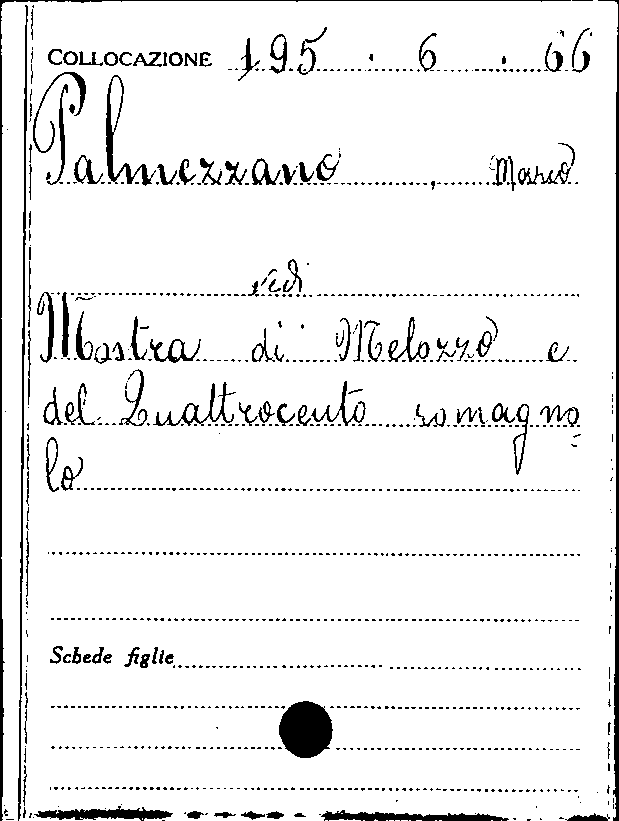 COLLOCAZIONE 195 . 6 . 66
Palmezzano , Marco
vedi
Mostra di Melozzo e
del Quattrocento romagno=
lo
Schede figlie